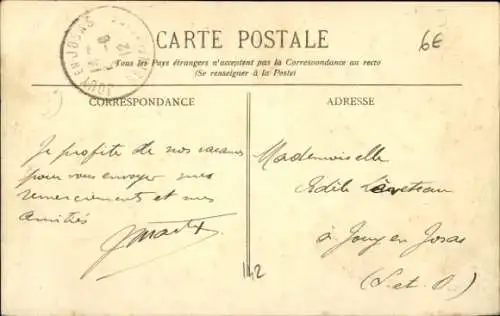 CARTE POSTALE
6€
Tous les Pays étrangers n'acceptent pas la Correspondance au recto
(Se renseigner à la Poste)
JOUY EN JOSAS
CORRESPONDANCE
Je profite de nos vacances
pour vous envoyer mes
remerciements et mes
amitiés
ADRESSE
Mademoiselle
à Jouy en Josas
(S. et O.)